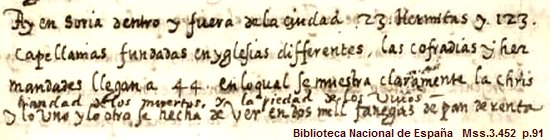 Ay en Soria dentro y fuera de la ciudad .23. Hermitas y .123.
Capellanias fundadas en yglesias differentes, las cofradias y her
mandades llegan a 44. en lo qual se muestra claramente la chris
tiandad de los muertos, y la piedad de los vivos
y lo uno y lo otro se hecha de ver en dos mill fanegas de pan de renta
Biblioteca Nacional de España Mss.3.452 p.91